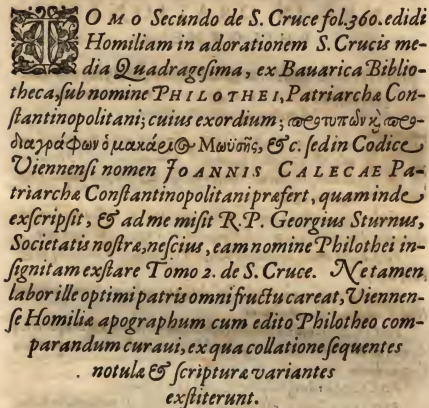 TOMO Secundo de S. Cruce fol. 360. edidi
Homiliam in adorationem S. Crucis me-
dia Quadragesima, ex Bauarica Biblio-
theca, sub nomine PHILOTHEI, Patriarchæ Con-
stantinopolitani; cuius exordium; προτυπῶν κ̀ προ-
διαγράφων ὁ μακάριος Μωϋσῆς, &c. sed in Codice
Viennensi nomen JOANNIS CALECAE Pa-
triarchæ Constantinopolitani præfert, quam inde
exscripsit, & ad me misit R. P. Georgius Sturnus,
Societatis nostræ, nescius, eam nomine Philothei in-
signitam exstare Tomo 2. de S. Cruce. Ne tamen
labor ille optimi patris omni fructu careat, Viennen-
se Homiliæ apographum cum edito Philotheo com-
parandum curaui, ex qua collatione sequentes
notulæ & scripturæ variantes
exstiterunt.